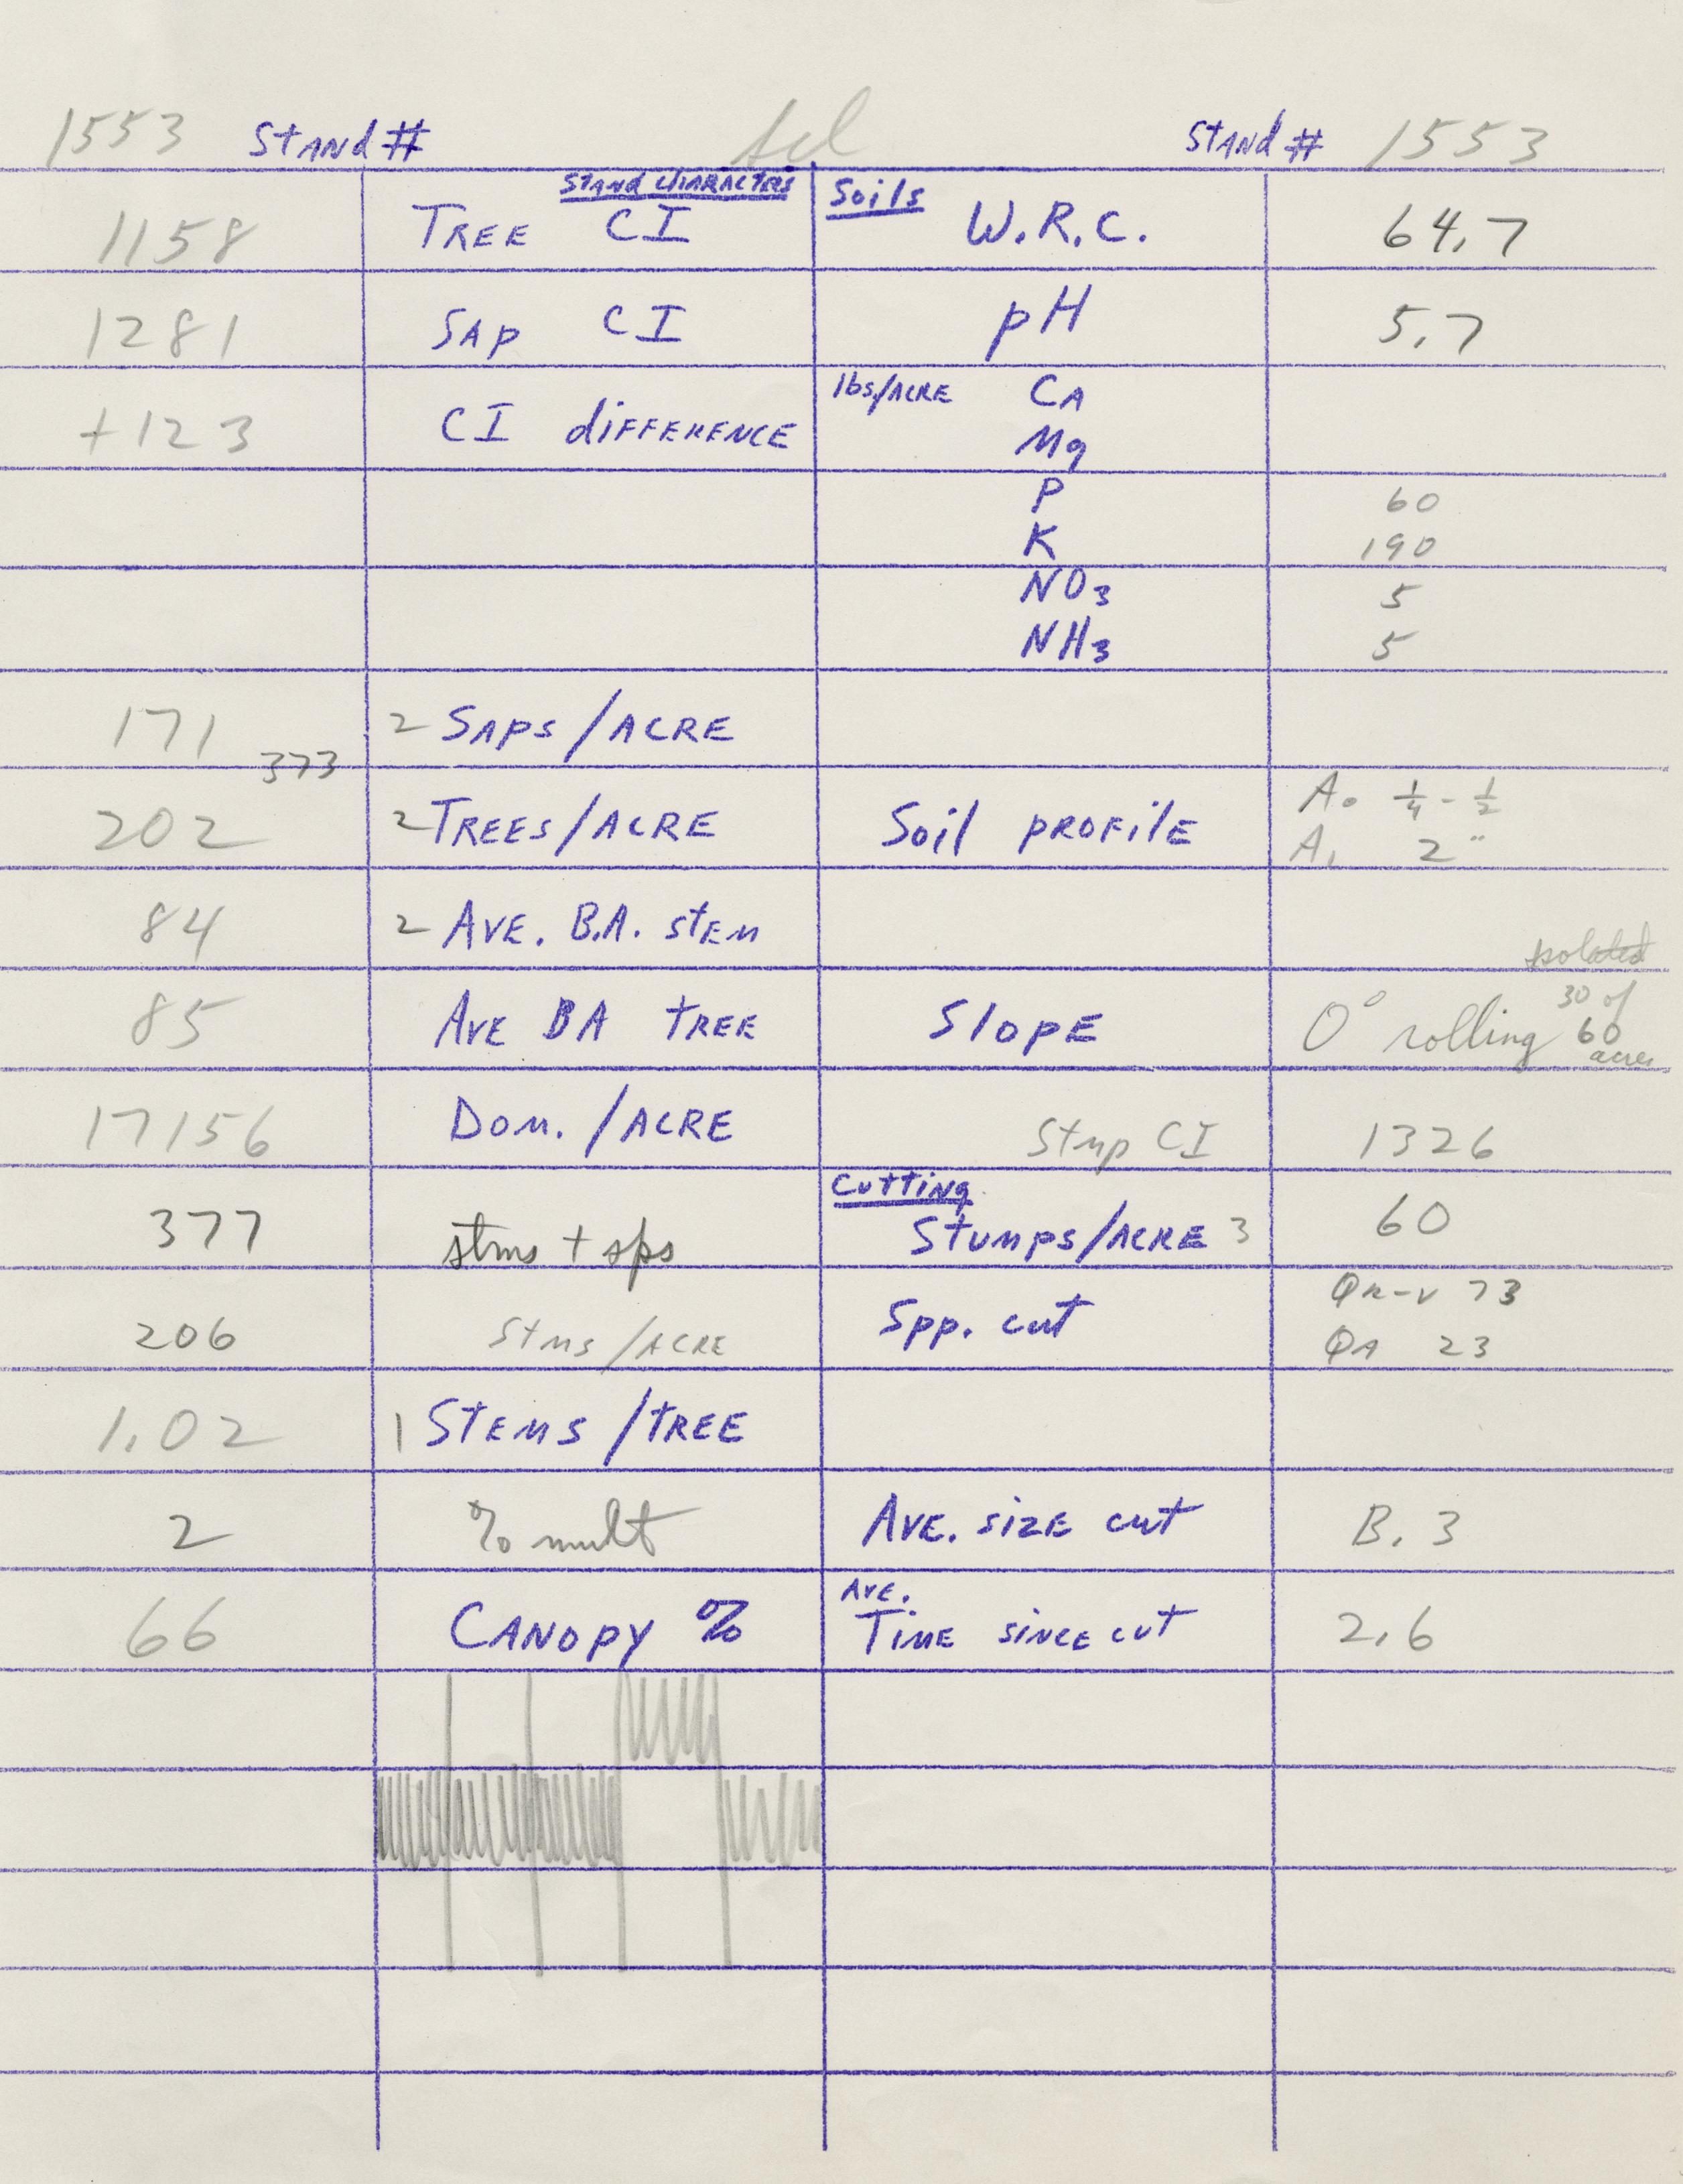 1553 Stand # Stand # 1553
Stand Characters Soils
1158 Tree CI W.R.C. 64.7
1281 Sap CI pH 5.7
+123 CI difference lbs/Acre Ca
Mg
P 60
K 190
NO3 5
NH3 5
171 2 Saps/Acre
373
202 2 Trees/Acre Soil profile A0 1/4 - 1/2
A1 2"
84 2 Ave. B.A. stem
isolated
85 Ave BA tree Slope 0° rolling 30 of 60 acres
17156 Dom./Acre Stmp CI 1326
Cutting
377 stms + sps Stumps/Acre 3 60
206 Stms/Acre Spp. cut Qr-v 73
Qa 23
1.02 1 Stems/tree
2 % mult Ave. size cut B.3
66 Canopy % Ave. Time since cut 2.6